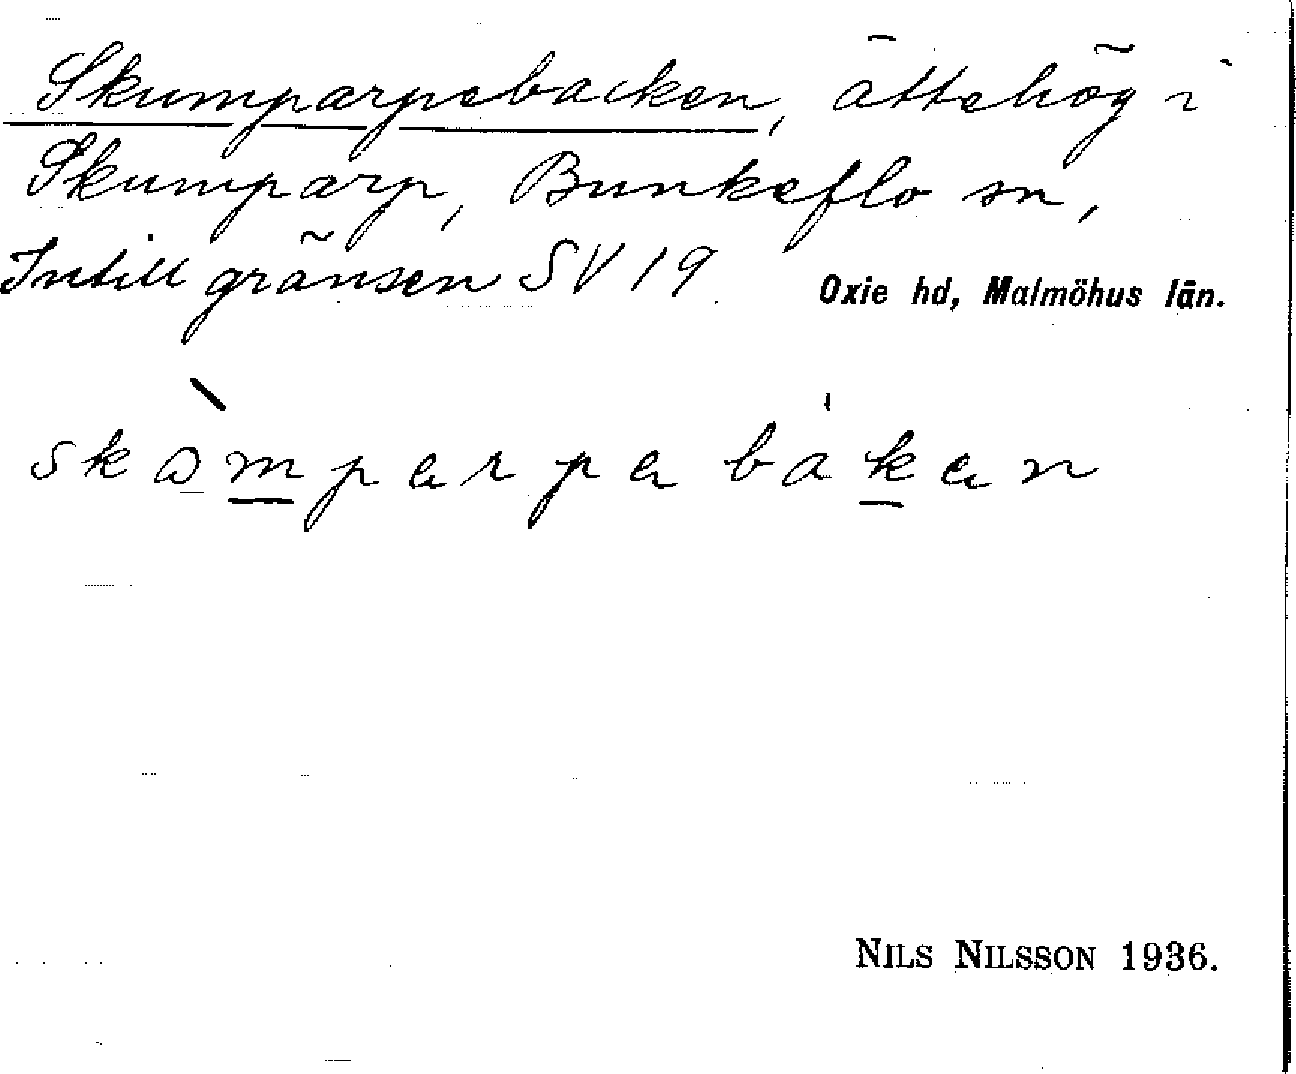 Skumparpebacken, ättehög i
Skumparp, Bunkeflo sn,
Intill gränsen SV 19
Oxie hd, Malmöhus län.
NILS NILSSON 1936.